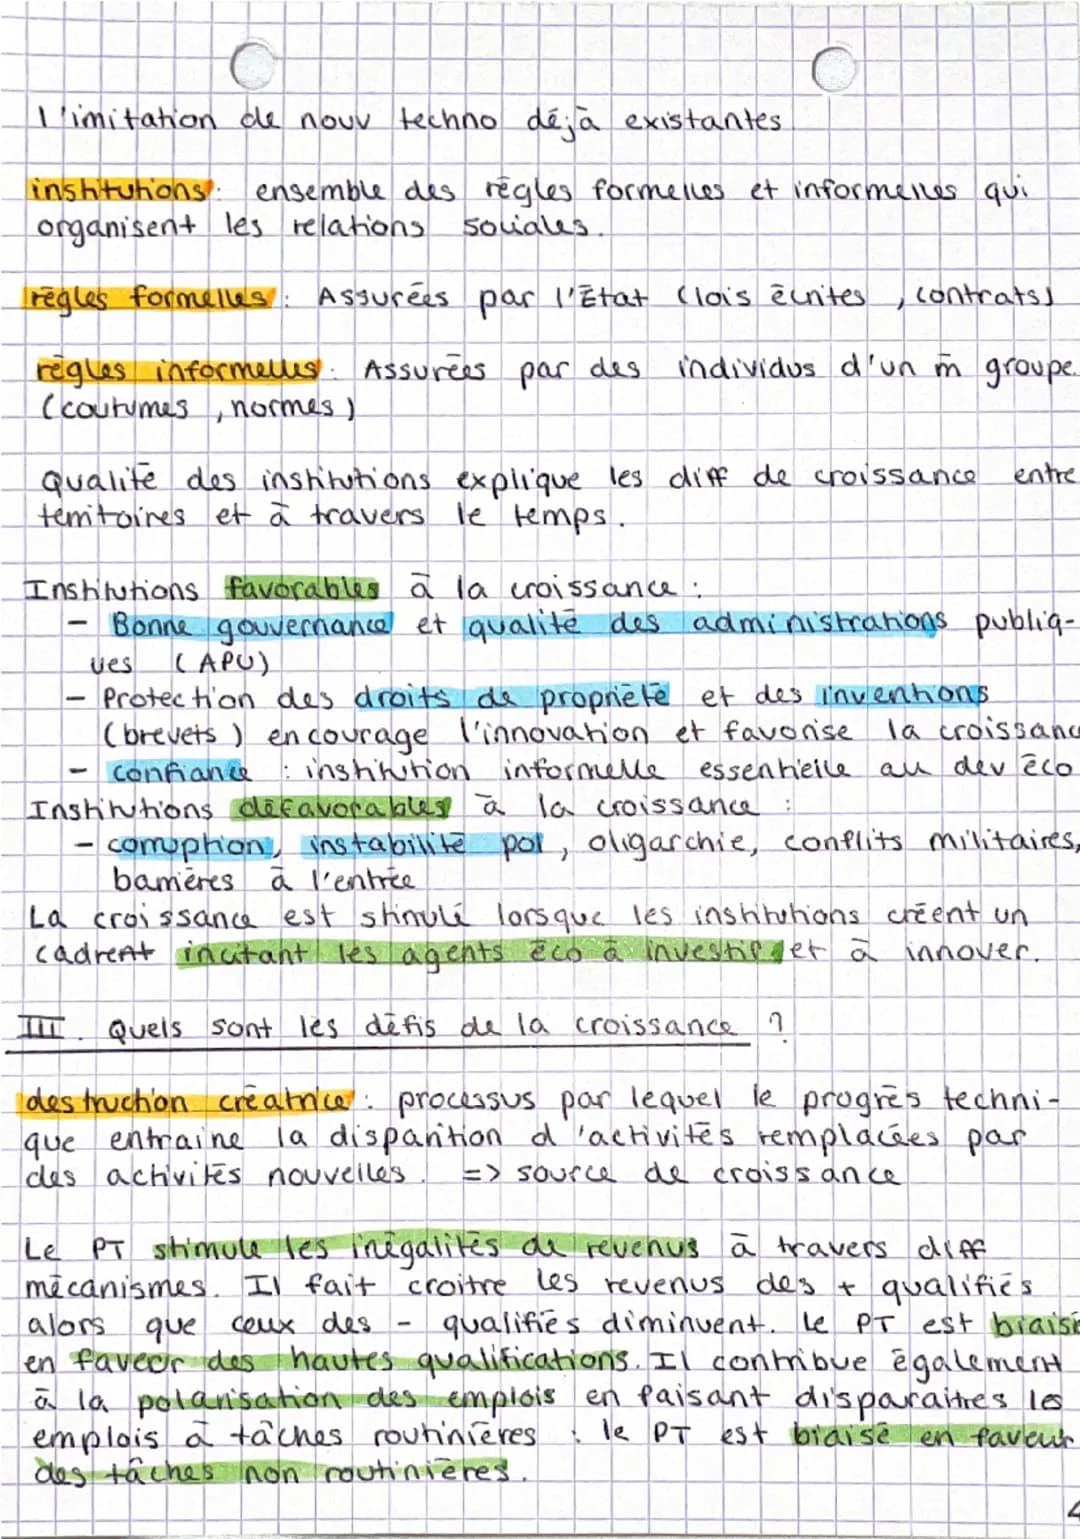 l'imitation de nouv techno déjà existantes.
institutions : ensemble des règles formelles et informelles qui
organisent les relations sociales.
règles formelles : Assurées par l'État (lois écrites, contrats)
règles informelles : Assurées par des individus d'un m̄ groupe
(coutumes, normes)
Qualité des institutions explique les diff de croissance entre
territoires et à travers le temps.
Institutions favorables à la croissance :
- Bonne gouvernance et qualité des administrations publiq-
ues (APU)
- Protection des droits de propriété et des inventions
(brevets) encourage l'innovation et favorise la croissanc
- confiance : institution informelle essentielle au dev éco
Institutions défavorables à la croissance :
- corruption, instabilité pol, oligarchie, conflits militaires,
barrières à l'entrée
La croissance est stimulé lorsque les institutions créent un
cadrent incitant les agents éco à investir et à innover.
III. Quels sont les défis de la croissance ?
destruction créatrice : processus par lequel le progrès techni-
que entraine la disparition d'activités remplacées par
des activités nouvelles. => source de croissance
Le PT stimule les inégalités de revenus à travers diff
mécanismes. Il fait croitre les revenus des + qualifiés
alors que ceux des - qualifiés diminuent. Le PT est biaisé
en faveur des hautes qualifications. Il contribue également
à la polarisation des emplois en faisant disparaitres les
emplois à tâches routinières : le PT est biaisé en faveur
des tâches non routinières.